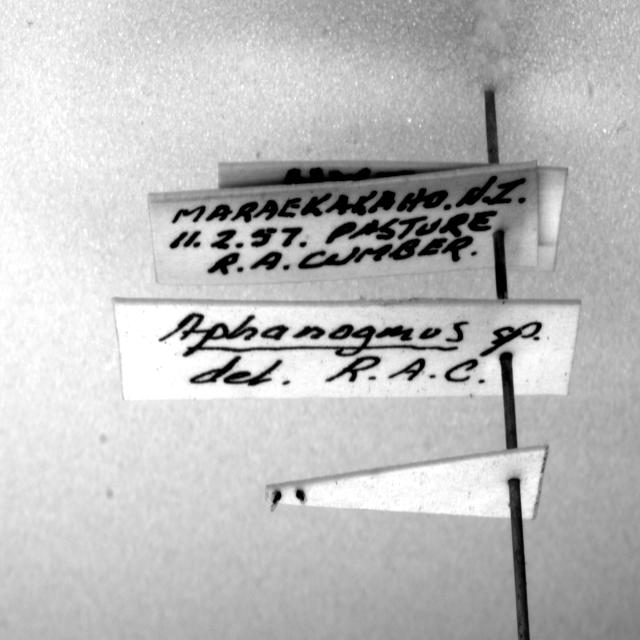 MARAEKAKAHO. N.Z.
11. 2. 57. PASTURE
R. A. CUMBER.
Aphanogmus sp.
det. R. A. C.